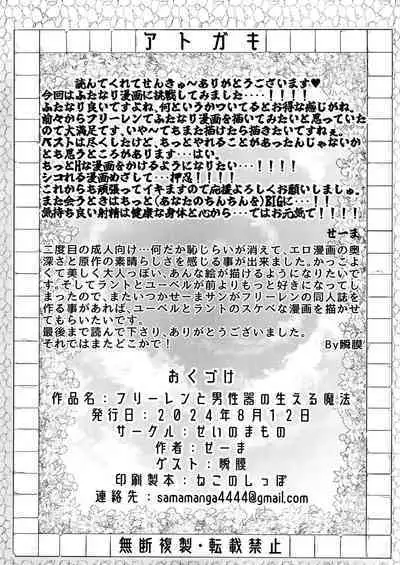 アトガキ
読んでくれてせんきゅ～ありがとうございます♥
今回はふたなり漫画に挑戦してみました…！！！！
ふたなり良いですよね、何というかついてるとお得な感じがね。
前々からフリーレンでふたなり漫画を描いてみたいと思っていた
ので大満足です、いや～ちてまた描けたら描きたいですねぇ。
ベストは尽くしたけど、もっとやれることがあったんじゃないか
とも思うところがあります…はい。
もっとHな漫画をかけるようになりたい…！！！！
シコれる漫画めざして…押忍！！！！
これからも頑張ってイキますので応援よろしくお願いしましゅ。
また会うときはもっと(あなたのちんちんを)BIGに…！！
気持ち良い射精は健康な身体と心から…てはお元気で！！
せーま
二度目の成人向け…何だか恥じらいが消えて、エロ漫画の奥
深さと原作の素晴らしさを感じる事が出来ました。かっこよ
くて美しく大人っぽい、あんな絵が描けるようになりたいで
す。そしてラントとユーベルが前よりもっと好きになってしま
ったので、またいつかせーまサンがフリーレンの同人誌を
作る事があれば、ユーベルとラントのスケベな漫画を描かせ
てもらいたいです。
最後まで読んで下さり、ありがとうございました。
それではまたどこかで！
By瞬膜
おくづけ
作品名：フリーレンと男性器の生える魔法
発行日：2024年8月12日
サークル：せいのまもの
作者：せーま
ゲスト：瞬膜
印刷製本：ねこのしっぽ
連絡先：samamanga4444@gmail.com
無断複製・転載禁止